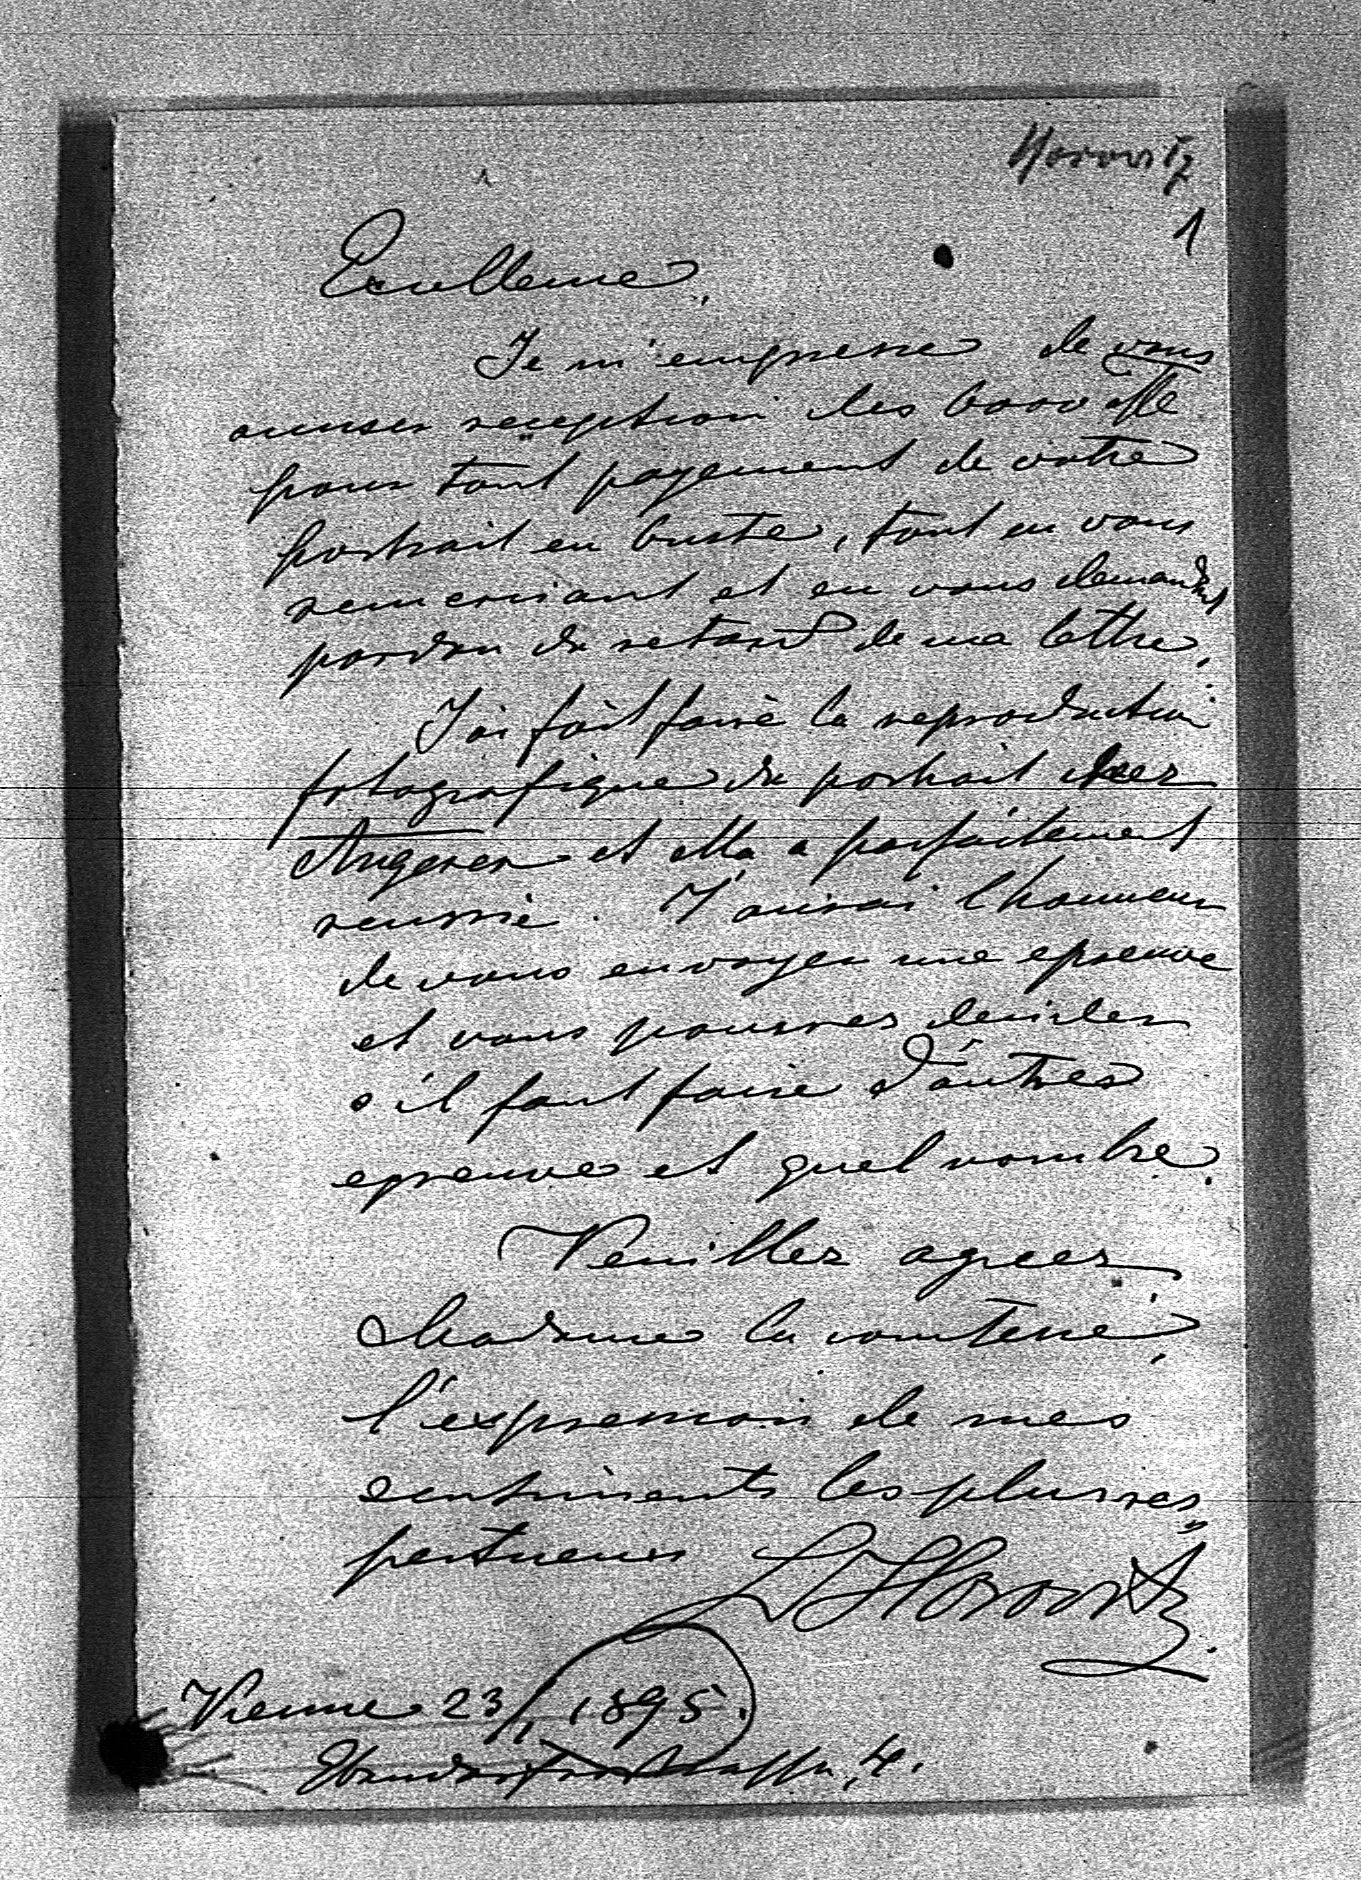 Horovitz
1
Excellence,
Je m'empresse de vous
accuser reception des 6000 Mk
pour tout payement de votre
portrait en buste, tout en vous
remerciant et en vous demandant
pardon du retard de ma lettre.
J'ai fait faire la reproduction
fotografique du portrait chez
Angerer et ella a parfaitement
reussie. J'aurai l'honneur
de vous envoyer une epreuve
et vous pourrez decider
s'il faut faire d'autres
epreuves et quel nombre.
Veuillez agreer
Madame la comtesse,
l'expression de mes
sentiments les plus res=
pectueux LHorovitz
Vienne 23/1 1895.
4.